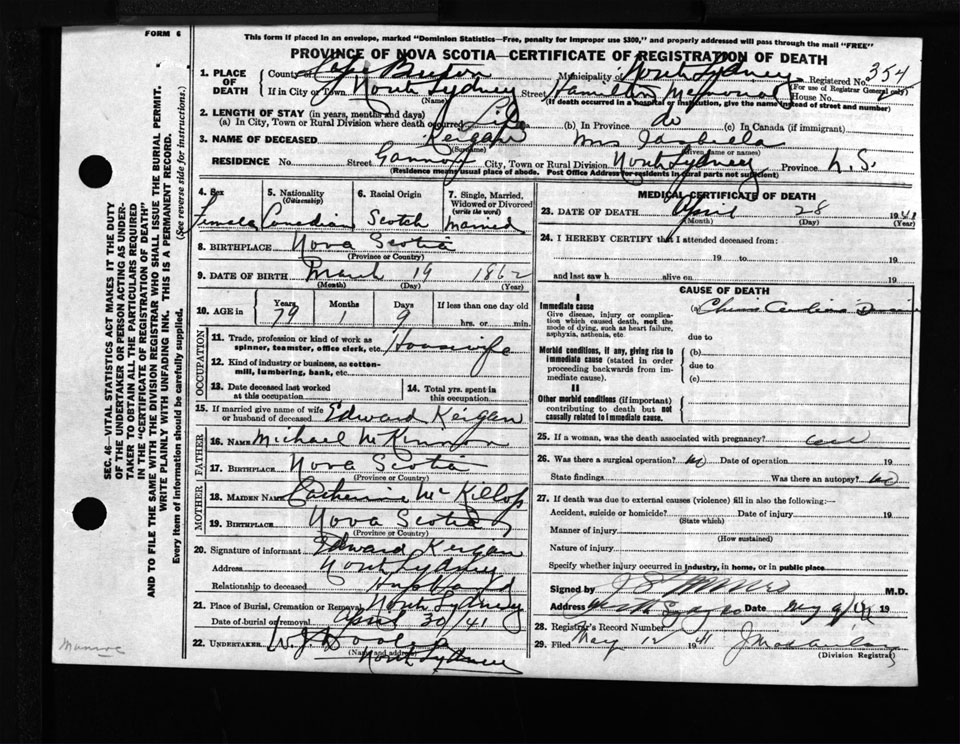 FORM 6
This form if placed in an envelope, marked "Dominion Statistics—Free, penalty for improper use $300," and properly addressed will pass through the mail "FREE"
PROVINCE OF NOVA SCOTIA—CERTIFICATE OF REGISTRATION OF DEATH
1. PLACE OF DEATH County Cape Breton Municipality North Sydney Registered No. 354
(For use of Registrar General only)
If in City or Town North Sydney Street Hamilton Memorial House No.
(Name) (If death occurred in a hospital or institution, give the name instead of street and number)
2. LENGTH OF STAY (in years, months and days)
(a) In City, Town or Rural Division where death occurred Life (b) In Province do (c) In Canada (if immigrant)
3. NAME OF DECEASED Keigan Mrs Isabella
(Surname) (Given name or names)
RESIDENCE No. Street City, Town or Rural Division North Sydney Province N.S.
(Residence means usual place of abode. Post Office Address for residents in rural parts not sufficient)
4. Sex 5. Nationality (Citizenship) 6. Racial Origin 7. Single, Married, Widowed or Divorced (write the word)
Female Canadian Scotch Married
8. BIRTHPLACE Nova Scotia
(Province or Country)
9. DATE OF BIRTH March 19 1862
(Month) (Day) (Year)
10. AGE in Years Months Days If less than one day old
79 1 9 hrs. or min.
OCCUPATION
11. Trade, profession or kind of work as spinner, teamster, office clerk, etc. Housewife
12. Kind of industry or business, as cotton-mill, lumbering, bank, etc.
13. Date deceased last worked at this occupation
14. Total yrs. spent in this occupation
15. If married give name of wife or husband of deceased Edward Keigan
FATHER
16. NAME Michael McKinnon
17. BIRTHPLACE Nova Scotia
(Province or Country)
MOTHER
18. MAIDEN NAME Catherine McKillop
19. BIRTHPLACE Nova Scotia
(Province or Country)
20. Signature of informant Edward Keigan
Address North Sydney
Relationship to deceased Husband
21. Place of Burial, Cremation or Removal North Sydney
Date of burial or removal April 30/41
22. UNDERTAKER W.J. Dooley
(Name and address) North Sydney
MEDICAL CERTIFICATE OF DEATH
23. DATE OF DEATH April 28 1941
(Month) (Day) (Year)
24. I HEREBY CERTIFY that I attended deceased from:
19 to 19
and last saw h alive on 19
CAUSE OF DEATH
I
Immediate cause (a)
Give disease, injury or complication which caused death, not the mode of dying, such as heart failure, asphyxia, asthenia, etc.
due to
Morbid conditions, if any, giving rise to immediate cause (stated in order proceeding backwards from immediate cause).
(b)
due to
(c)
II
Other morbid conditions (if important) contributing to death but not causally related to immediate cause.
25. If a woman, was the death associated with pregnancy?
26. Was there a surgical operation? no Date of operation 19
State findings Was there an autopsy? no
27. If death was due to external causes (violence) fill in also the following:—
Accident, suicide or homicide? Date of injury 19
(State which)
Manner of injury
(How sustained)
Nature of injury
Specify whether injury occurred in industry, in home, or in public place
Signed by M.D.
Address Date May 9/41 19
28. Registrar's Record Number
29. Filed May 12 1941
(Division Registrar)
SEC. 46—VITAL STATISTICS ACT MAKES IT THE DUTY
OF THE UNDERTAKER OR PERSON ACTING AS UNDER-
TAKER TO OBTAIN ALL THE PARTICULARS REQUIRED
IN THE "CERTIFICATE OF REGISTRATION OF DEATH"
AND TO FILE THE SAME WITH THE DIVISION REGISTRAR WHO SHALL ISSUE THE BURIAL PERMIT.
WRITE PLAINLY WITH UNFADING INK. THIS IS A PERMANENT RECORD.
Every item of information should be carefully supplied. (See reverse side for instructions.)
Munroe